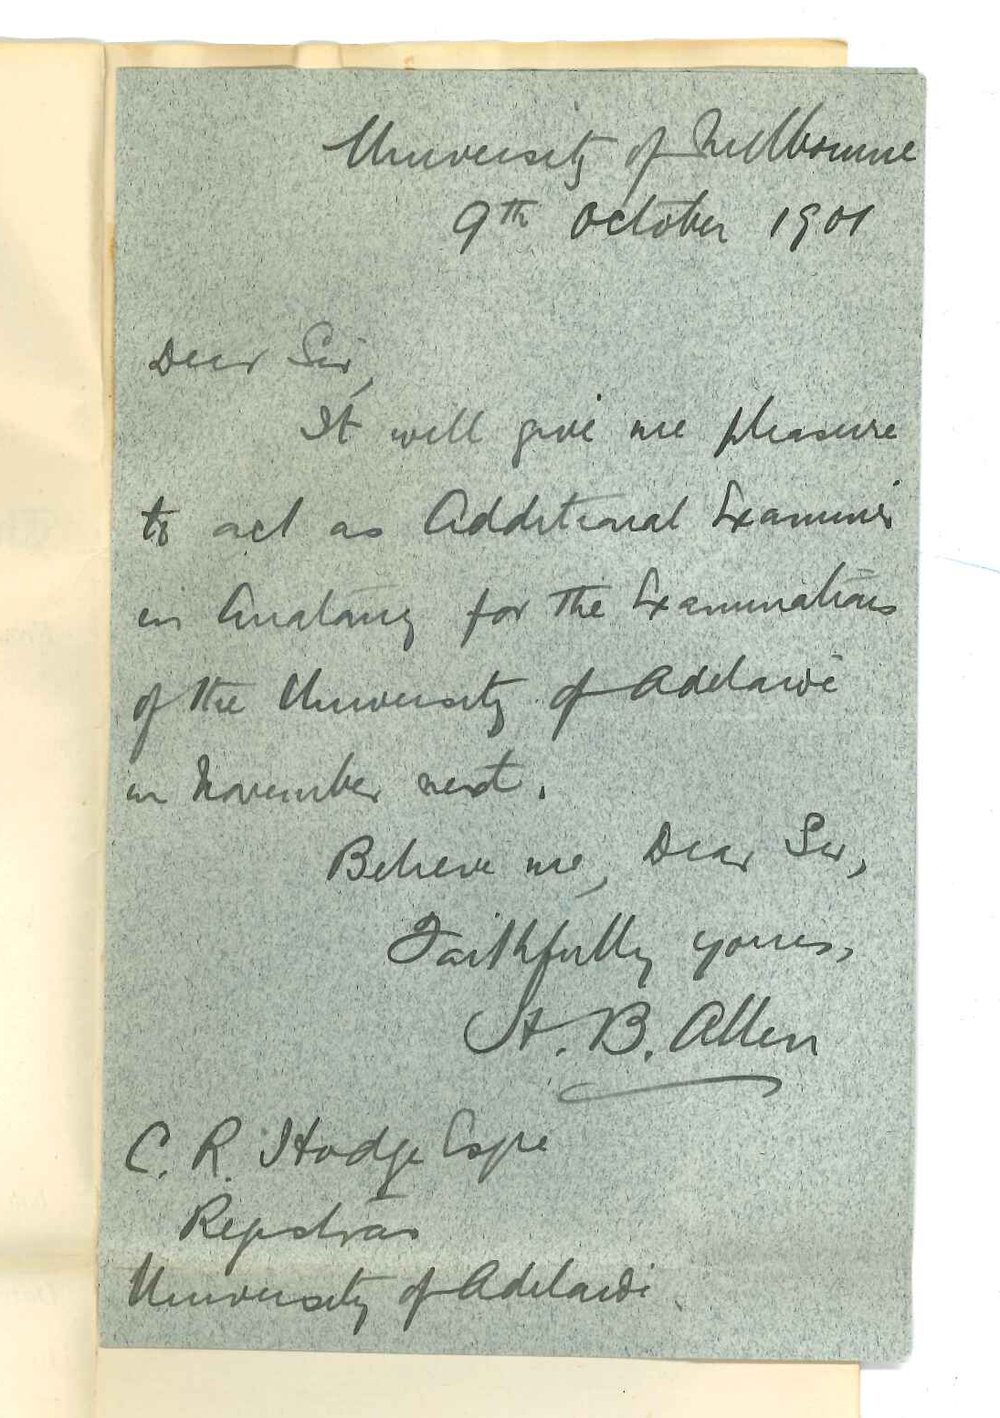 University of Melbourne
9th October 1901
Dear Sir,
It will give me pleasure
to act as Additional Examiner
in Anatomy for the Examinations
of the University of Adelaide
in November next.
Believe me, Dear Sir,
Faithfully yours,
H. B. Allen
C. R. Hodge Esqre
Registrar
University of Adelaide